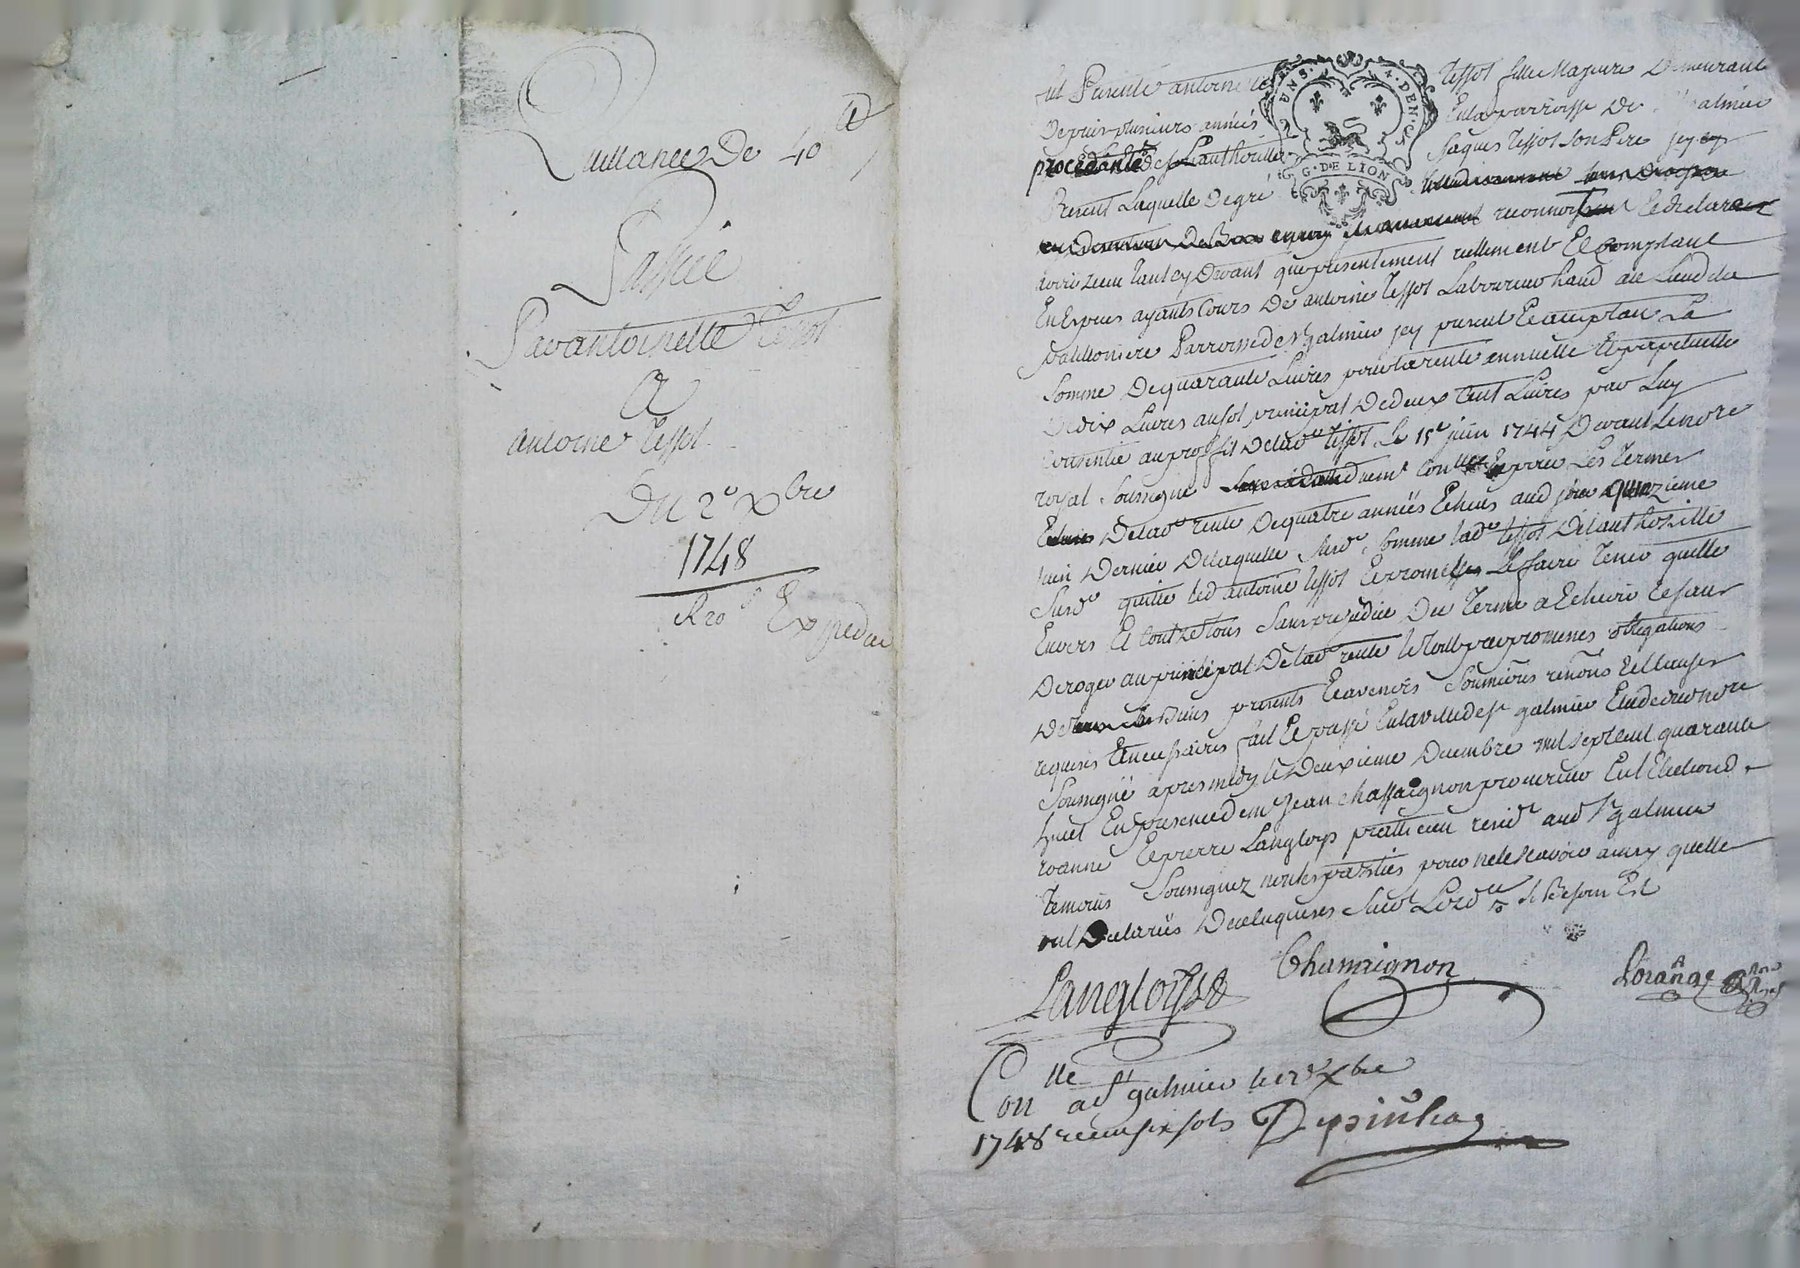 Quittance De 40 lt
Passée
Par antoinette Tissot
A
antoine Tissot
Du 2e Xbre
1748
Expediée
UN S. X. DEN.
G. DE LION
fut Presente antoinette Tissot fille Majeure Demeurant
Depuis plusieurs années En la parroisse De St galmier
procedante de L'authorité Jaques Tissot son Pere icy
Present Laquelle De gré
reconnoit Et declare
avoir receu tant cy Devant que presentement reellement Et comptant
En Especes ayants Cours De antoine Tissot Laboureur hand au Lieu de la
Parroisse de St galmier icy present Et acceptant La
Somme De quarante Livres pour la rente annuelle Et perpetuelle
De dix Livres au sol principal De deux Cent Livres par Luy
au profit De lad. Tissot Le 15e juin 1744 Devant Le nore
royal Soussigné Les Termes
De lad. rente De quatre années Echeus aud. jour quinzieme
juin Dernier De laquelle Susd. somme lad. Tissot De l'authorité
Susd. quitte led. antoine Tissot Et promet Le faire Tenir quitte
Envers Et Contre Tous Sans prejudice Du Terme a Echeoir Et sans
Deroger au principal De lad. rente Le Tout par promesses obligations
De Biens presents Et avenirs Soumissions renons Et Clauses
requises Et necessaires fait Et passé En la ville de St galmier Etude du nore
Soussigné apres midy le Deuxieme Decembre mil sept cent quarante
huit En presence de me Jean Chassaignon procureur En l'Election de
roanne Et pierre Langloys praticien resid. aud. St galmier
Temoins Soussignez non les parties pour ne le sçavoir ainsy qu'elles
ont Declarés De ce Enquises
Langloys
Chassaignon
Coulle a St galmier le 12e Xbre
1748 receu six sols